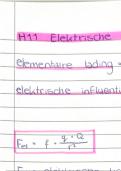 H11 Elektrische
elementaire lading =
elektrische influenti
Fel = f · q · Q / r²